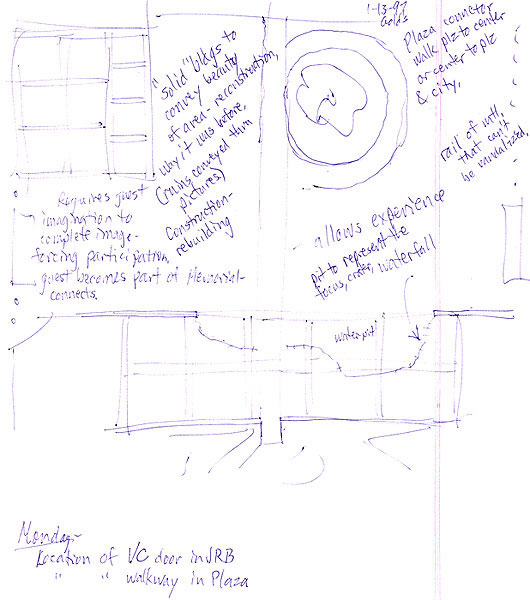 1-13-97
Plaza connector
walk plz to center
or center to plz
& city.
"Solid" bldgs to
convey beauty
of area - reconstruction,
way it was before,
(ruins conveyed thru
pictures)
Construction-
rebuilding
rail of mtl,
that can't
be vandalized.
Requires guest
imagination to
complete image-
forcing participation,
guest becomes part of Memorial-
connects.
allows experience
pit to represent the
focus, crater, waterfall
water pit
Monday-
Location of VC door in JRB
" " walkway in Plaza